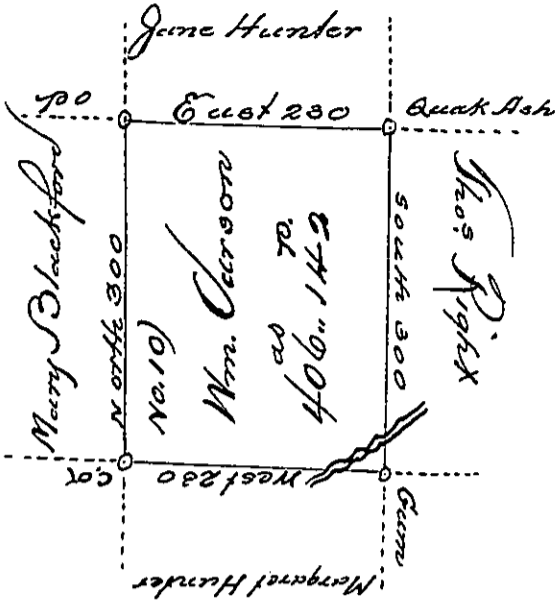 Jane Hunter
po
East 230
Quak Ash
Mary Blackford
North 300
No. 10)
Wm. Carson
as p.
406" 142
South 300
Thos. Right
West 230
Gum
Margaret Hunter